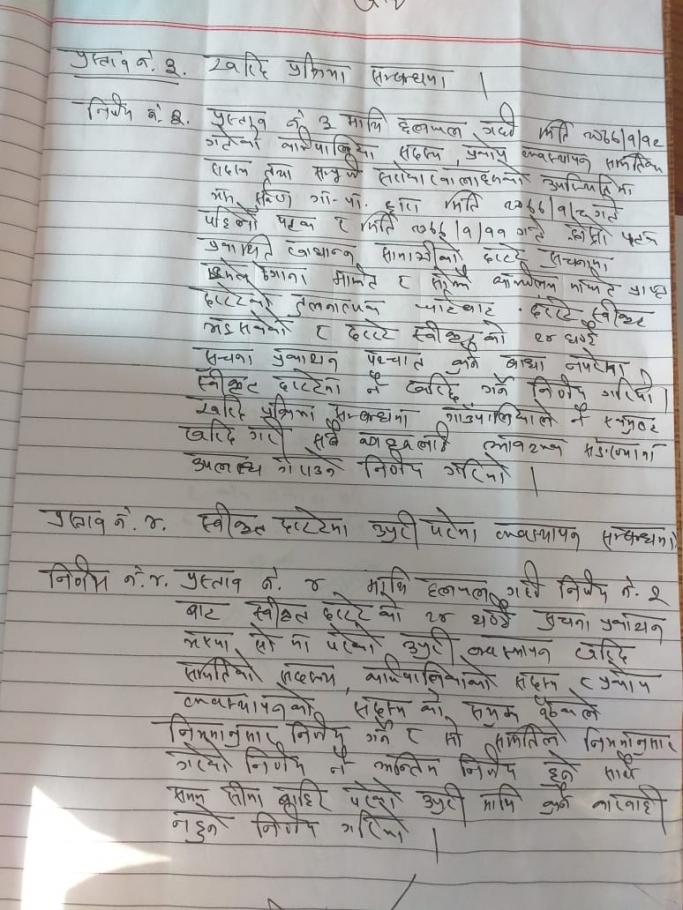 प्रस्ताव नं. ३. खरिद प्रक्रिया सम्बन्धमा ।
निर्णय नं. ३. प्रस्ताव नं ३ माथि छलफल गर्दा मिति २०७७/१/१८
गतेका कार्यपालिका सदस्य, प्रकोप व्यवस्थापन समितिका
सदस्य तथा सम्पूर्ण सरोकारवालाहरूको उपस्थितिमा
गा.पा. द्वारा मिति २०७७/१/८ गते
पहिलो पटक र मिति २०७७/१/११ गते दोस्रो पटक
प्रकाशित खाद्यान्न सामाग्रीको दररेट सूचनामा
इमेल ठेगाना मार्फत र कार्यालय मार्फत प्राप्त
दररेटको तुलनात्मक चार्टबाट दररेट स्वीकृत
भइसकेको र दररेट स्वीकृतको २४ घण्टे
सूचना प्रकाशन पश्चात कुनै बाधा नपरेमा
स्वीकृत दररेटमा नै खरिद गर्ने निर्णय गरियो ।
खरिद प्रक्रिया सम्बन्धमा गाउँपालिकाले नै एकमुष्ट
खरिद गरी सबै वडाहरूलाई आवश्यक सङ्ख्यामा
उपलब्ध गराउने निर्णय गरियो ।
प्रस्ताव नं. ४. स्वीकृत दररेटमा उजुरी परेमा व्यवस्थापन सम्बन्धमा
निर्णय नं. ४. प्रस्ताव नं. ४ माथि छलफल गर्दा निर्णय नं. २
बाट स्वीकृत दररेटको २४ घण्टे सूचना प्रकाशन
भएमा सो मा परेको उजुरी व्यवस्थापन खरिद
समितिको सदस्य, कार्यपालिकाको सदस्य र प्रकोप
व्यवस्थापनको सदस्यको संयुक्त बैठकले
नियमानुसार निर्णय गर्ने र सो समितिले नियमानुसार
गरेको निर्णय नै अन्तिम निर्णय हुने साथै
समय सीमा बाहिर परेको उजुरी माथि कुनै कारवाही
नहुने निर्णय गरियो ।